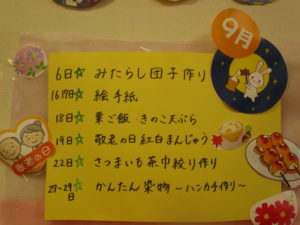 9月
6日☆ みたらし団子作り
16.17日☆ 絵手紙
18日☆ 栗ご飯・きのこ天ぷら
19日☆ 敬老の日 紅白まんじゅう
22日☆ さつまいも茶巾絞り作り
27~29日☆ かんたん染物 ～ハンカチ作り～
敬老の日